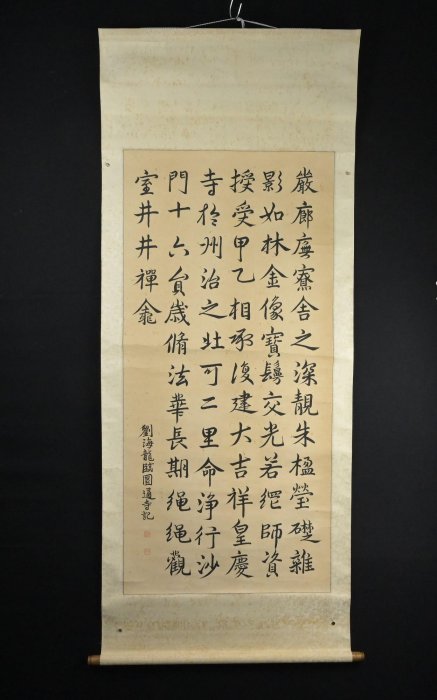 嚴廊廡寮舍之深靚朱楹瑩礎雜
影如林金像寶鬘交光若纒師資
授受甲乙相承復建大吉祥皇慶
寺於州治之北可二里命淨行沙
門十六員歲脩法華長期繩繩觀
室井井禪龕
劉海龍臨圓通寺記